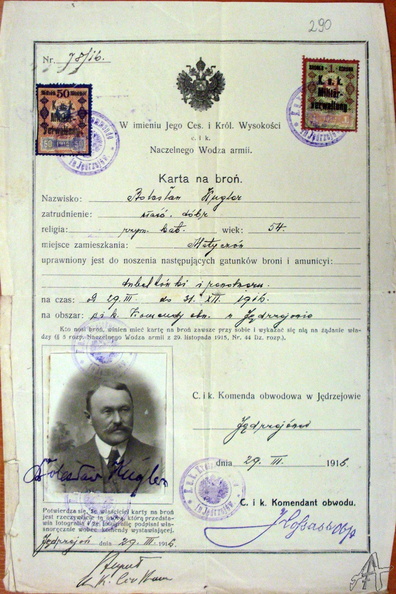 290
Nr. 78/16.
50
K. u. K.
Militär-
Verwaltung
W imieniu Jego Ces. i Król. Wysokości
c. i k.
Naczelnego Wodza armii.
Karta na broń.
Nazwisko: Bolesław Kugler
zatrudnienie: właśc. dóbr
religia: rzym. kat. wiek: 54.
miejsce zamieszkania:
uprawniony jest do noszenia następujących gatunków broni i amunicyi:
dubeltówki i
na czas: od 29. III. do 31. XII. 1916.
na obszar: c. i k. Komendy obw. w Jędrzejowie
Kto nosi broń, winien mieć kartę na broń zawsze przy sobie i wykazać się nią na żądanie wła-
dzy (§ 8 rozp. Naczelnego Wodza armii z 29. listopada 1915, Nr. 44 Dz. rozp.).
C. i k. Komenda obwodowa w Jędrzejowie
Jędrzejów
dnia 29. III. 1916
C. i k. Komendant obwodu.
Bolesław Kugler
Potwierdza się, że właściciel karty na broń
jest rzeczywiście tą osobą, którą przedsta-
wia fotografia i że fotografię podpisał własno-
ręcznie wobec komendy wystawiającej.
Jędrzejów dnia 29. III. 1916